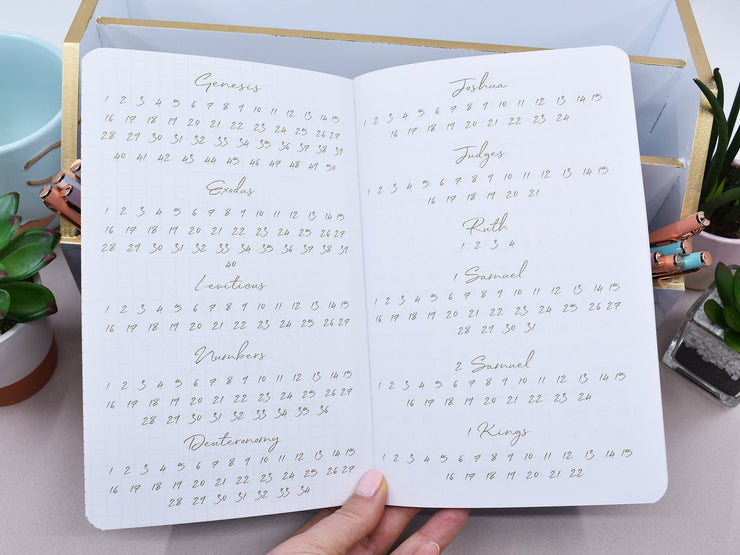 Genesis
1 2 3 4 5 6 7 8 9 10 11 12 13 14 15
16 17 18 19 20 21 22 23 24 25 26 27
28 29 30 31 32 33 34 35 36 37 38 39
40 41 42 43 44 45 46 47 48 49 50
Exodus
1 2 3 4 5 6 7 8 9 10 11 12 13 14 15
16 17 18 19 20 21 22 23 24 25 26 27
28 29 30 31 32 33 34 35 36 37 38 39
40
Leviticus
1 2 3 4 5 6 7 8 9 10 11 12 13 14 15
16 17 18 19 20 21 22 23 24 25 26 27
Numbers
1 2 3 4 5 6 7 8 9 10 11 12 13 14 15
16 17 18 19 20 21 22 23 24 25 26 27
28 29 30 31 32 33 34 35 36
Deuteronomy
1 2 3 4 5 6 7 8 9 10 11 12 13 14 15
16 17 18 19 20 21 22 23 24 25 26 27
28 29 30 31 32 33 34
Joshua
1 2 3 4 5 6 7 8 9 10 11 12 13 14 15
16 17 18 19 20 21 22 23 24
Judges
1 2 3 4 5 6 7 8 9 10 11 12 13 14 15
16 17 18 19 20 21
Ruth
1 2 3 4
1 Samuel
1 2 3 4 5 6 7 8 9 10 11 12 13 14 15
16 17 18 19 20 21 22 23 24 25 26 27
28 29 30 31
2 Samuel
1 2 3 4 5 6 7 8 9 10 11 12 13 14 15
16 17 18 19 20 21 22 23 24
1 Kings
1 2 3 4 5 6 7 8 9 10 11 12 13 14 15
16 17 18 19 20 21 22